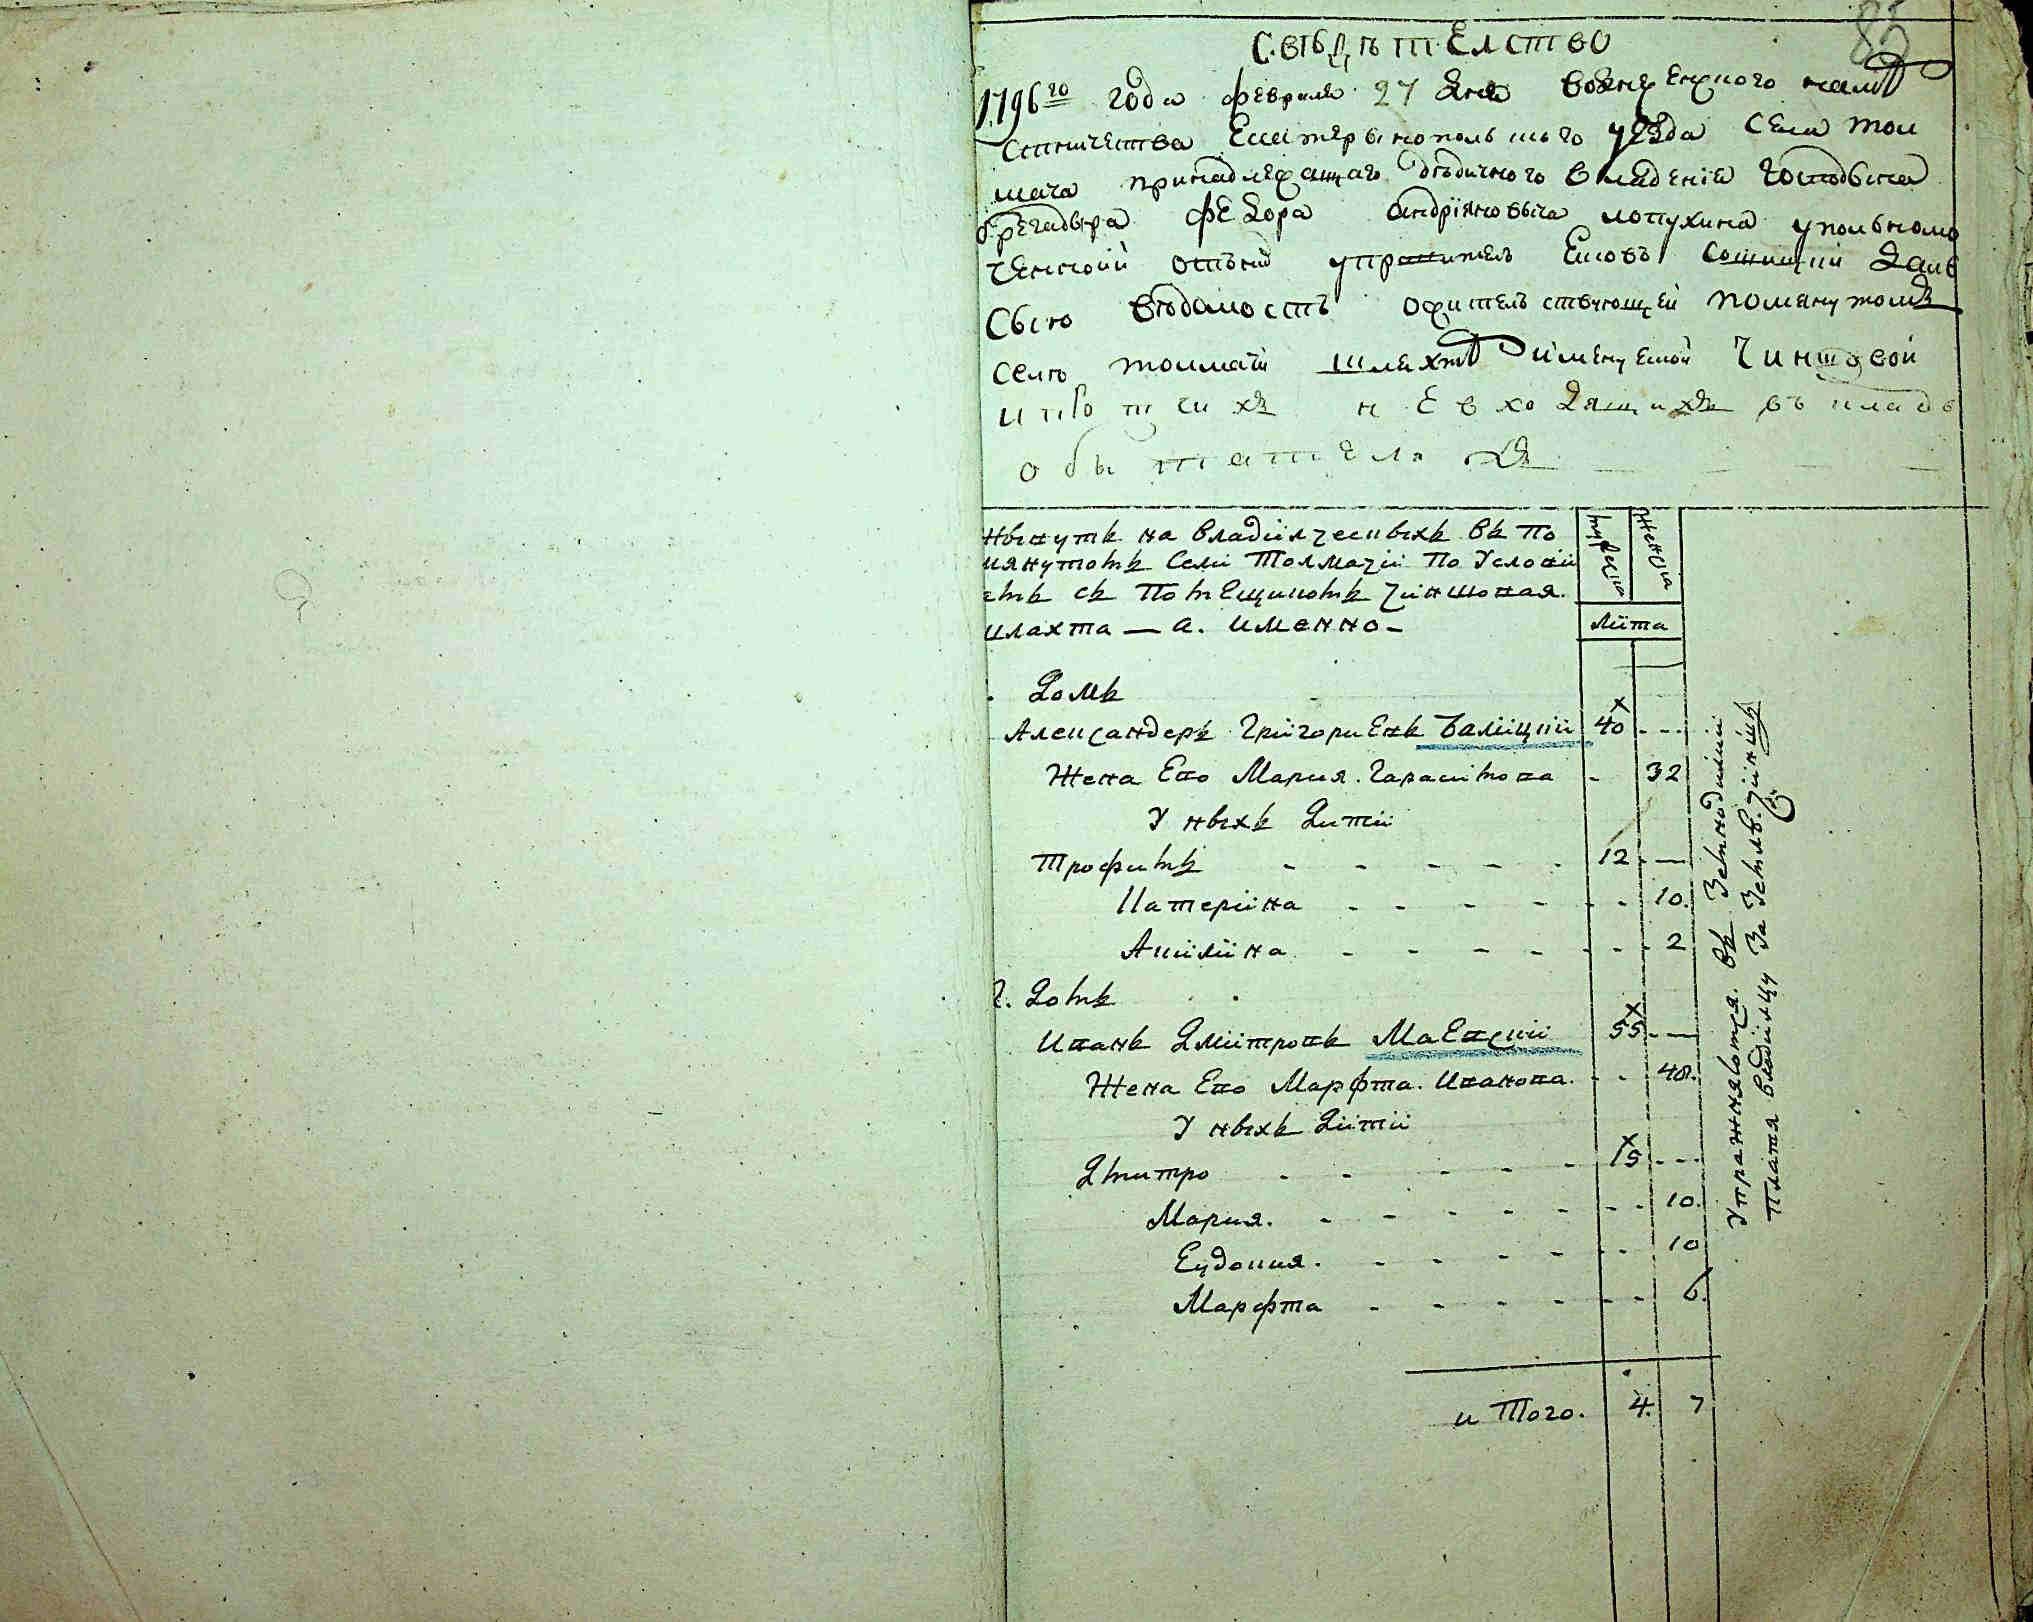 85
Свѣдѣтелство
1796го года февраля 27 дня вознесенскаго намѣст
нничества Екатеринополского уезда села Тол
мача принадлежащаго дѣдичного владенія господина
брегадира Федора андріяновича лопухина уполномо
ченной отъ управитель сочинилъ
сію вѣдомость о жителствующей помянутомъ
селѣ толмачи шляхты имянуемой Чиншовой
и протчихъ не входящихъ въ складъ
обывателяхъ
нынутъ на владіялческыхъ въ по
мянутомъ Селі Толмачіи По Условіи
емъ съ Помещикомъ чіншовая
шляхта — а. именно —
мужеска
женска
літа
. Домъ
Александеръ Григориевъ Баліцкій 40 - - -
Жена Ево Мария Гарасимова - 32
У ныхъ Дитіи
Трофимъ - - - - - - 12 - —
Катеріна - - - - - - 10.
Акиліна - - - - - - - 2
2. Домъ
Иванъ Дмітровъ Маевскій 55 - —
Жена Ево Марфта Иванова. - - 48.
У ныхъ Дітіи
Дмитро - - - - - 15 - - -
Мария. - - - - - - - 10.
Еудокия. - - - - - - 10
Марфта - - - - - - - 6.
и Того. 4. 7
Упражняются въ Земледиліи
Платя владілцу За Землю чіншъ